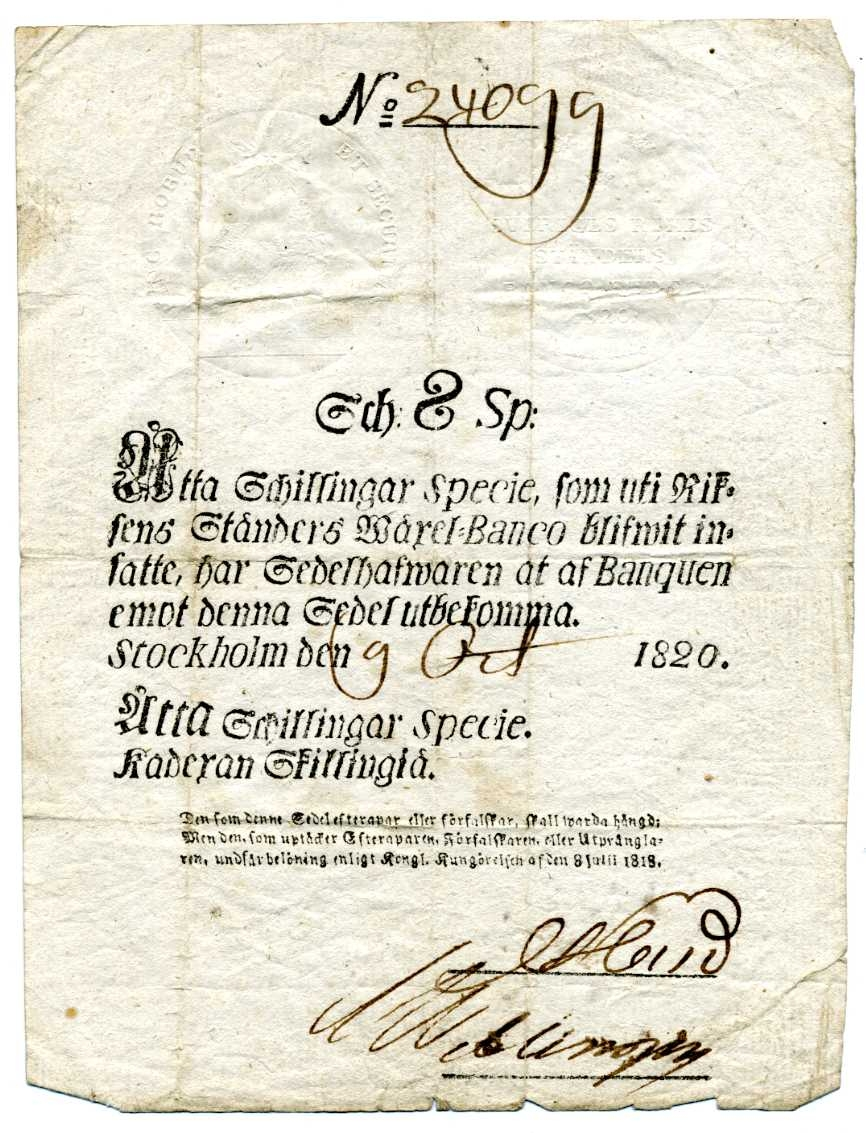 No 24099
HINC ROBUR ET SECURITAS
RIKSENS
STÄNDERS
Sch: 8 Sp:
Åtta Schillingar Specie, som uti Rik-
sens Ständers Wäxel-Banco blifwit in-
satte, har Sedelhafwaren at af Banquen
emot denna Sedel utbekomma.
Stockholm den 9 Oct 1820.
Åtta Schillingar Specie.
Kadexan Skillingiä.
Den som denne Sedel efterapar eller förfalskar, skall warda hängd;
Men den, som uptäcker Efteraparen, Förfalskaren, eller Utprångla-
ren, undfår belöning enligt Kongl. Kungörelsen af den 8 Julii 1818.